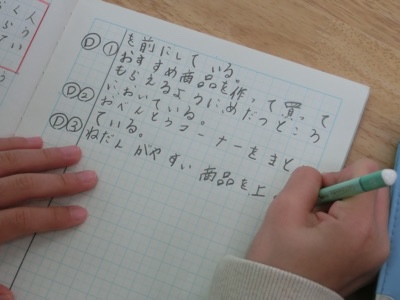 D① を前にしている。
おすすめ商品を作って買って
もらえるようにめだつところ
D② においている。
おべんとうコーナーをまと
D③ ている。
ねだんがやすい商品を上